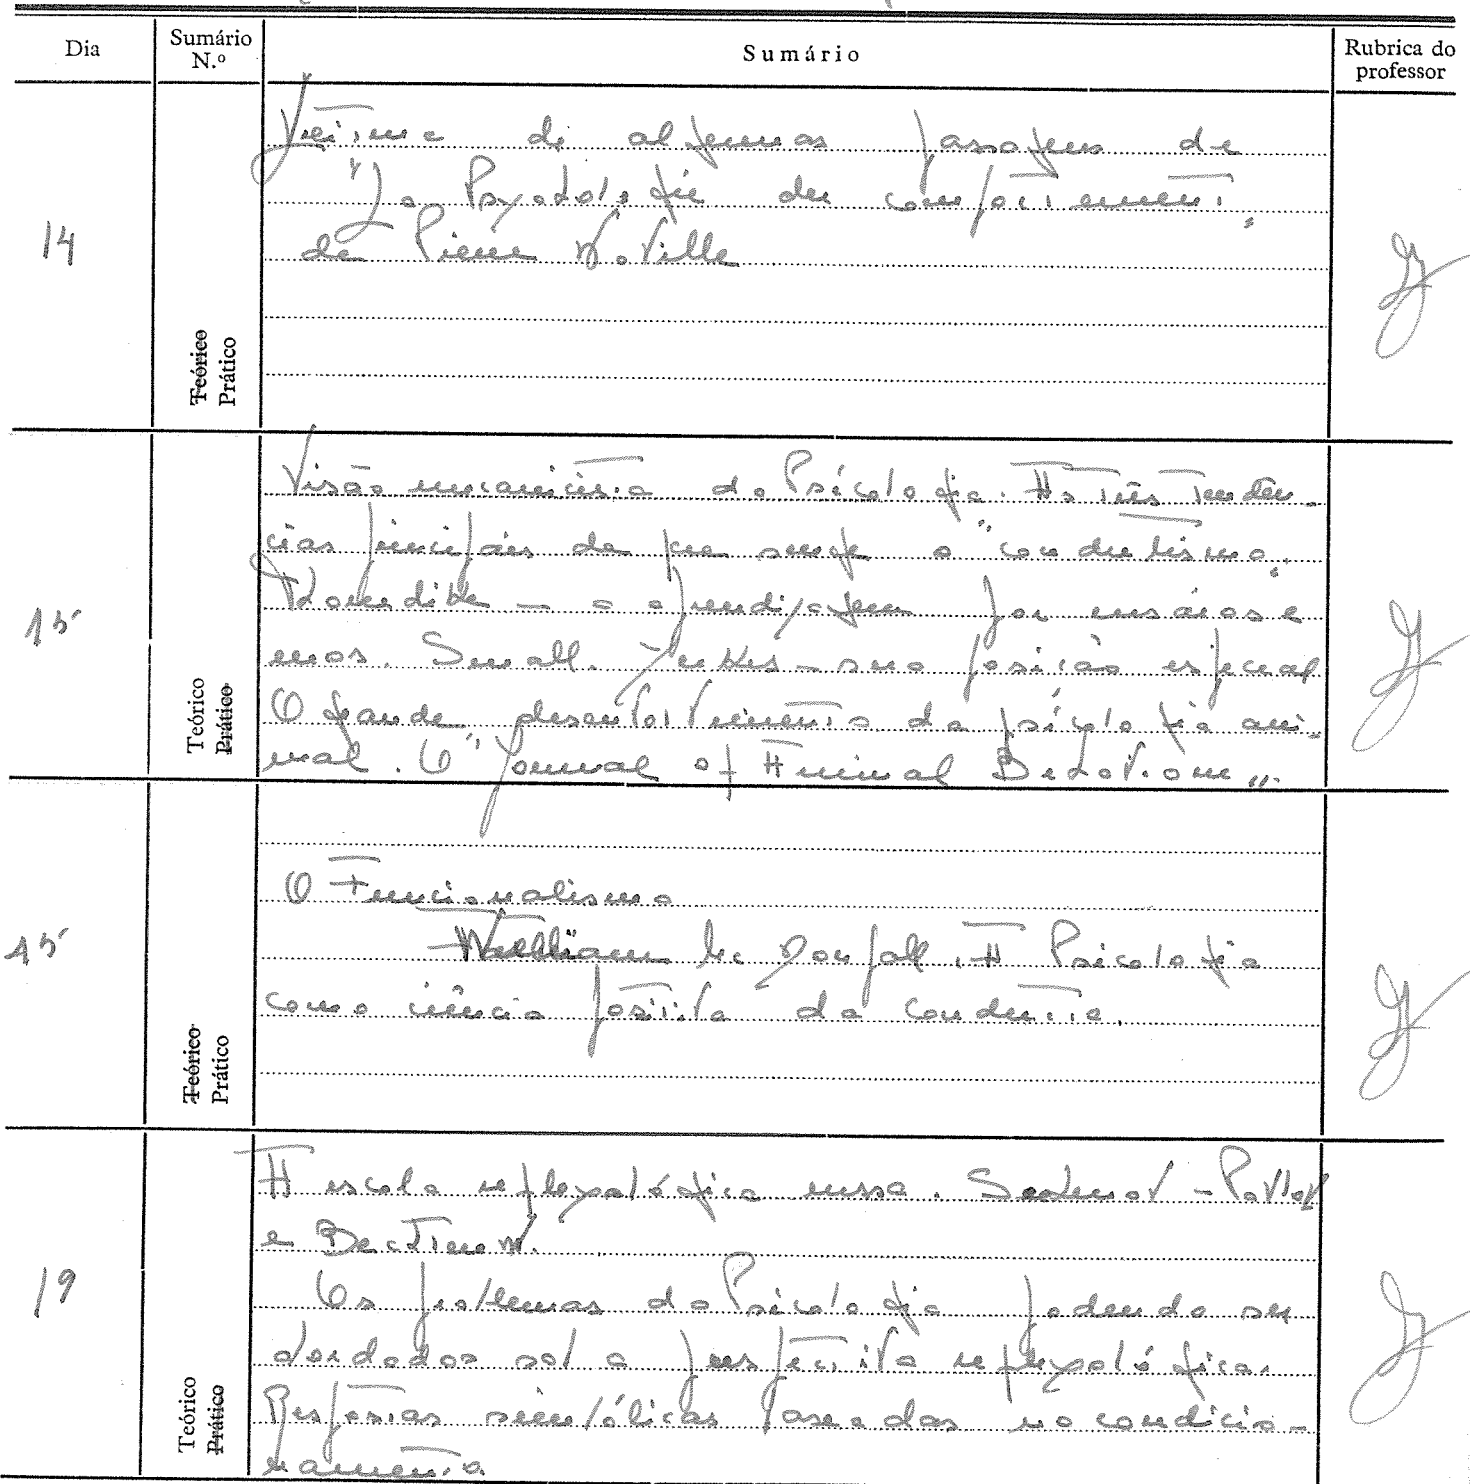 Dia
Sumário N.º
Sumário
Rubrica do professor
14
Teórico
Prático
Leitura de algumas passagens de
"La Psychologie du comportement"
de Pierre Naville
15
Teórico
Prático
Visão mecanicista da Psicologia. As três tendên-
cias principais de que surge o "condutismo".
Thorndike – a aprendizagem por ensáios e
erros. Small. Yerkes – sua posição especial
O grande desenvolvimento da psicologia ani-
mal. O "Journal of Animal Behaviour".
15
Teórico
Prático
O Funcionalismo
William Mc Dougall. A Psicologia
como ciência positiva da conducta.
19
Teórico
Prático
A escola reflexológica russa. Sechenov – Pavlov
e Bechterew.
Os problemas da Psicologia podendo ser
abordados sob a perspectiva reflexológica.
Respostas simbólicas baseadas no condicio-
namento